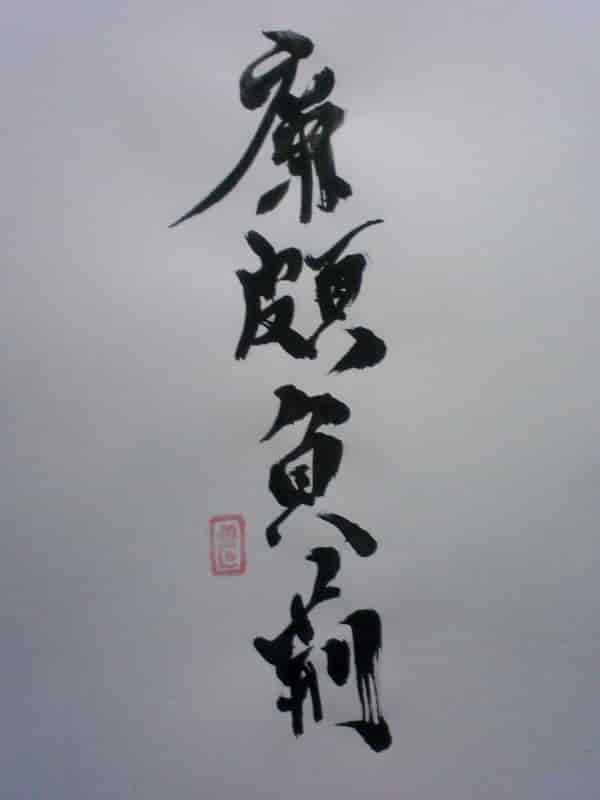 廉頗負荊